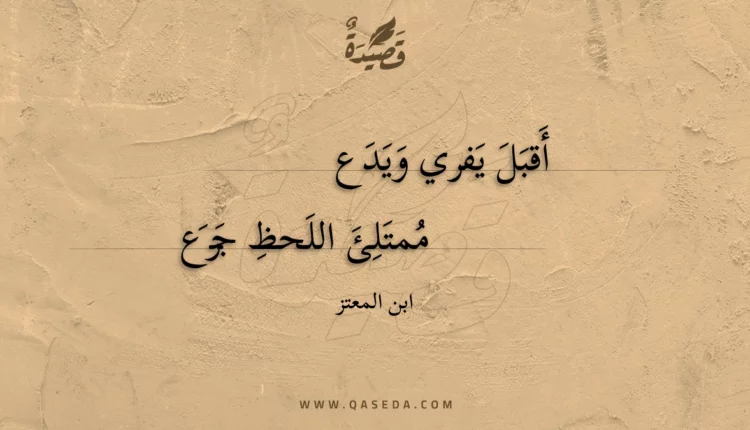 قَصِيدَةٌ
أَقبَلَ يَفري وَيَدَع
مُمتَلِئَ اللَحظِ جَزَع
ابن المعتز
WWW.QASEDA.COM